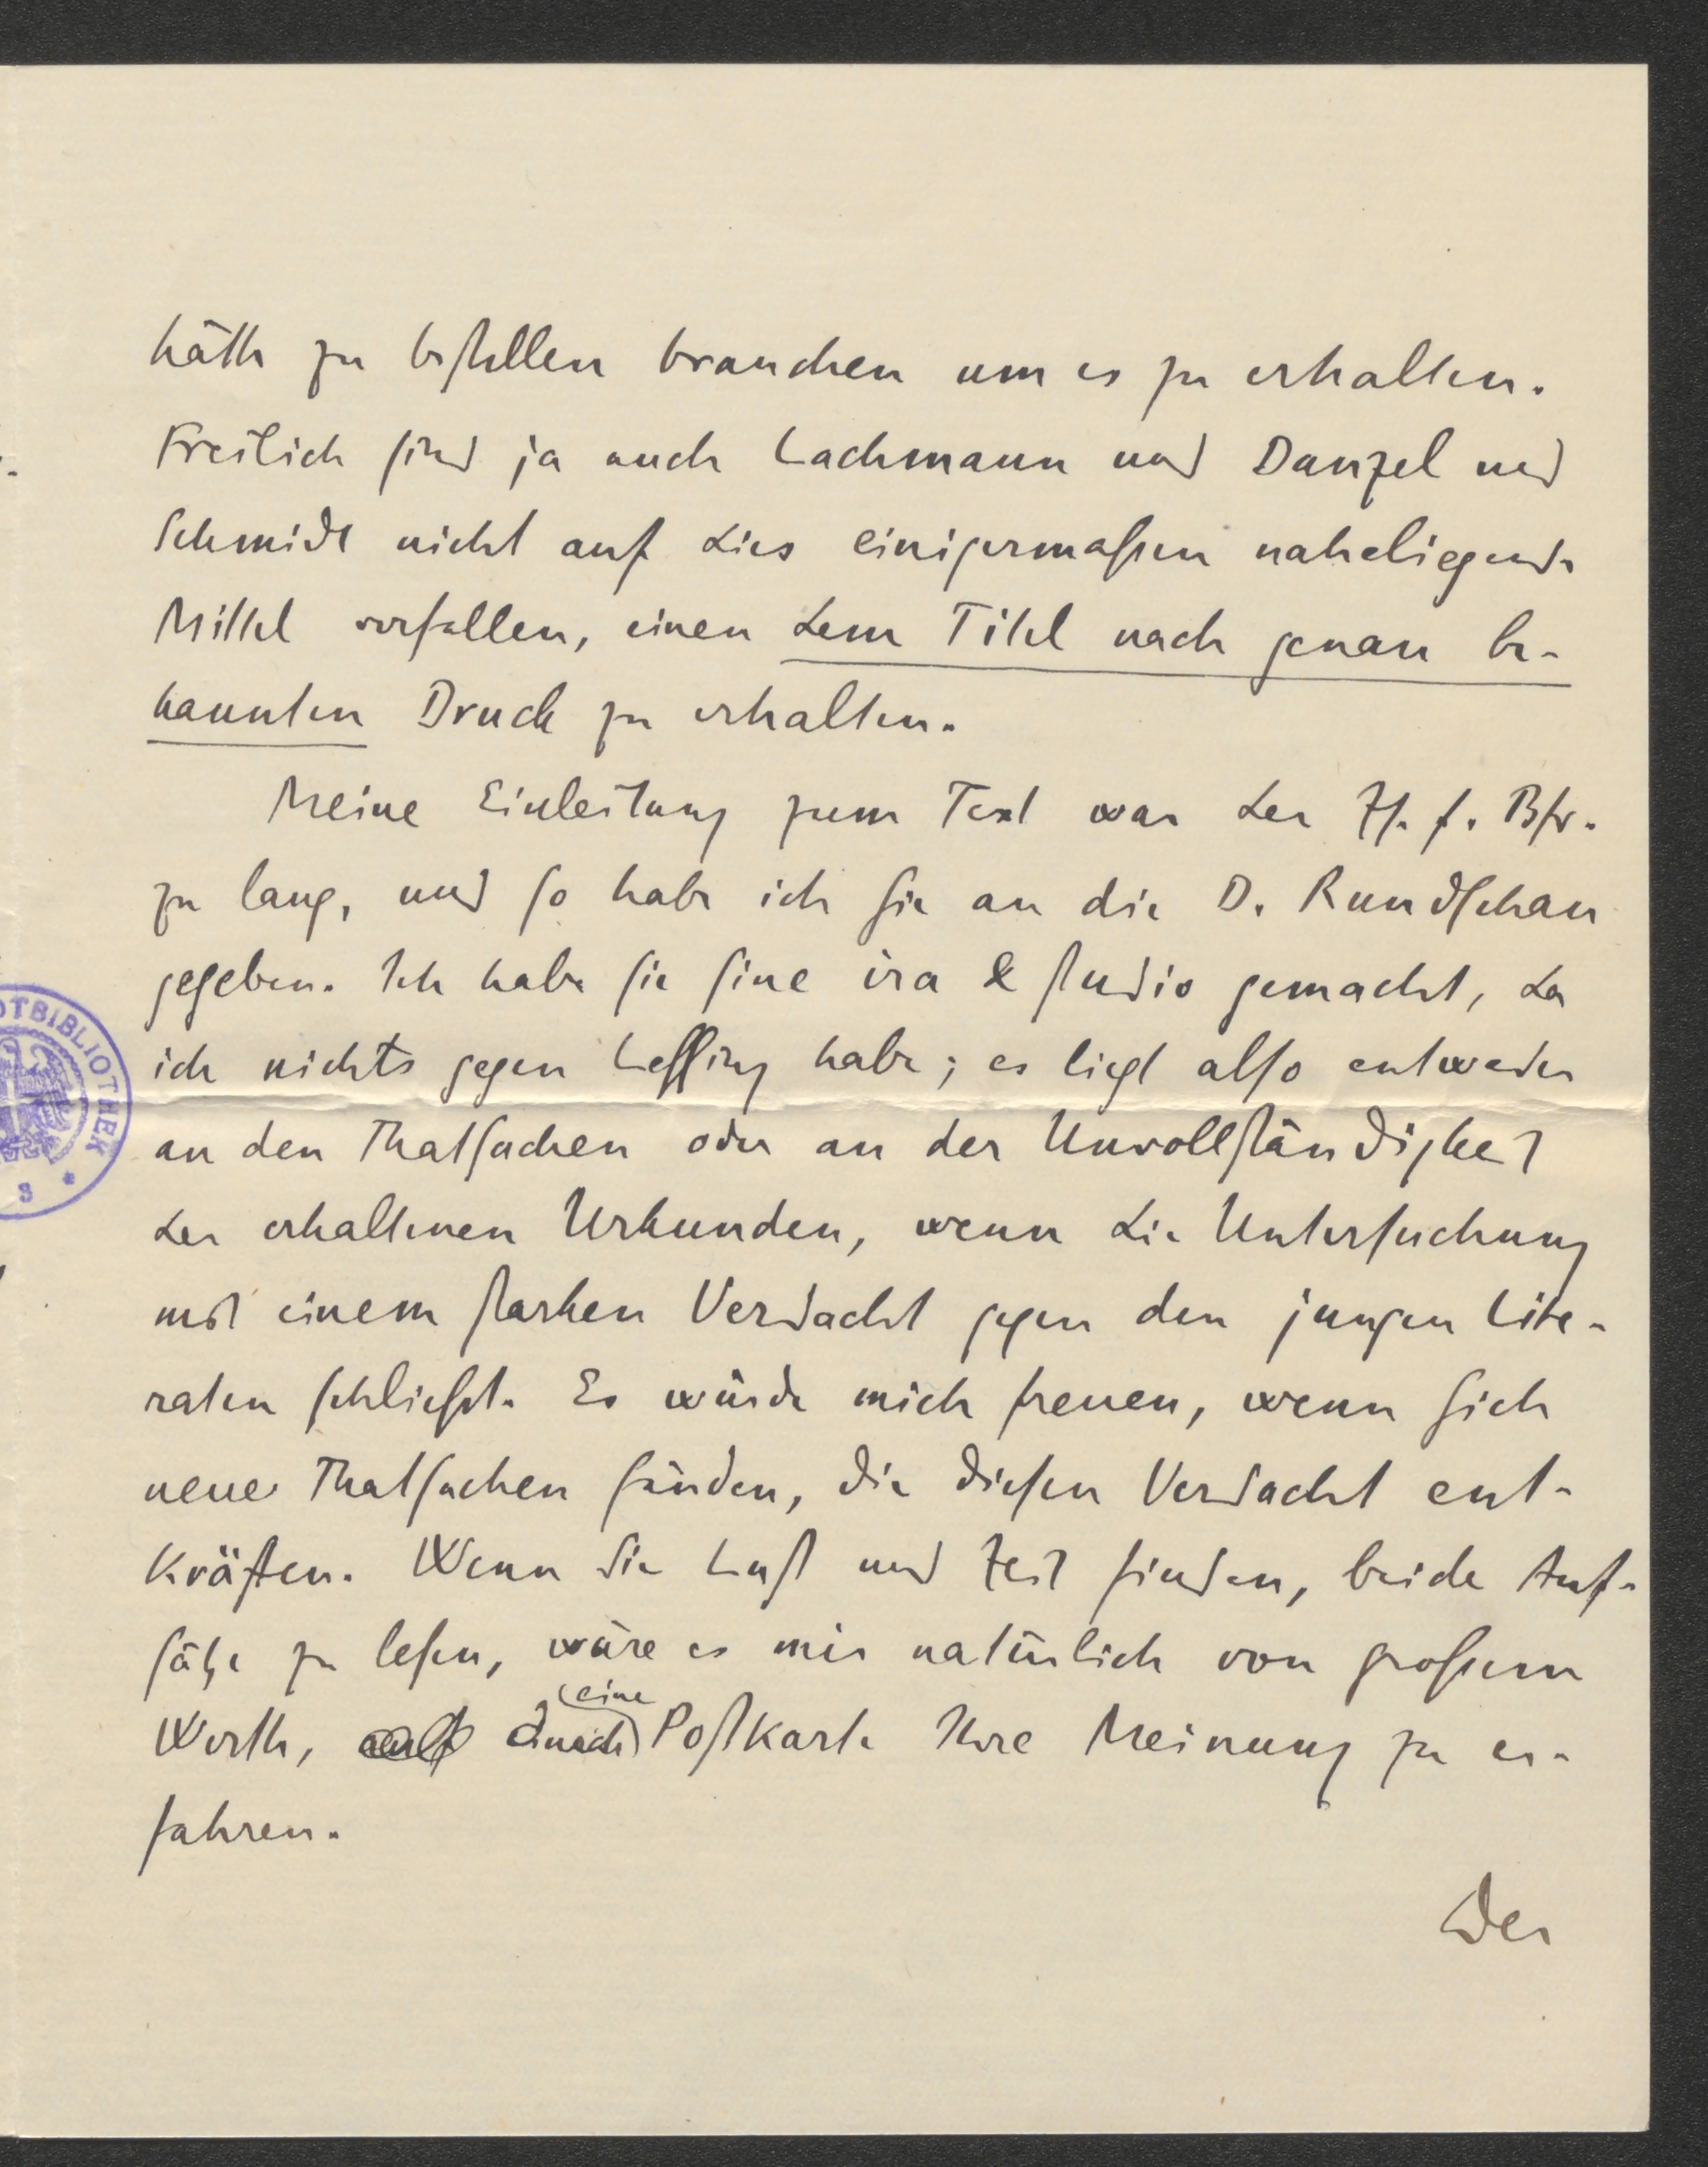 hätte zu bestellen brauchen um es zu erhalten.
Freilich sind ja auch Lachmann und Danzel und
Schmidt nicht auf dies einigermassen naheliegende
Mittel verfallen, einen dem Titel nach genau be-
kannten Druck zu erhalten.
Meine Einleitung zum Text war der Zs. f. Bfr.
zu lang, und so habe ich sie an die D. Rundschau
gegeben. Ich habe sie sine ira & studio gemacht, da
ich nichts gegen Lessing habe; es liegt also entweder
an den Thatsachen oder an der Unvollständigkeit
der erhaltenen Urkunden, wenn die Untersuchung
mit einem starken Verdacht gegen den jungen Lite-
raten schliesst. Es würde mich freuen, wenn sich
neue Thatsachen fänden, die diesen Verdacht ent-
kräften. Wenn Sie Lust und Zeit finden, beide Auf-
sätze zu lesen, wäre es mir natürlich von grossem
eine
Werthe, durch Postkarte Ihre Meinung zu er-
fahren.
Der
OTBIBLIOTHEK
S *